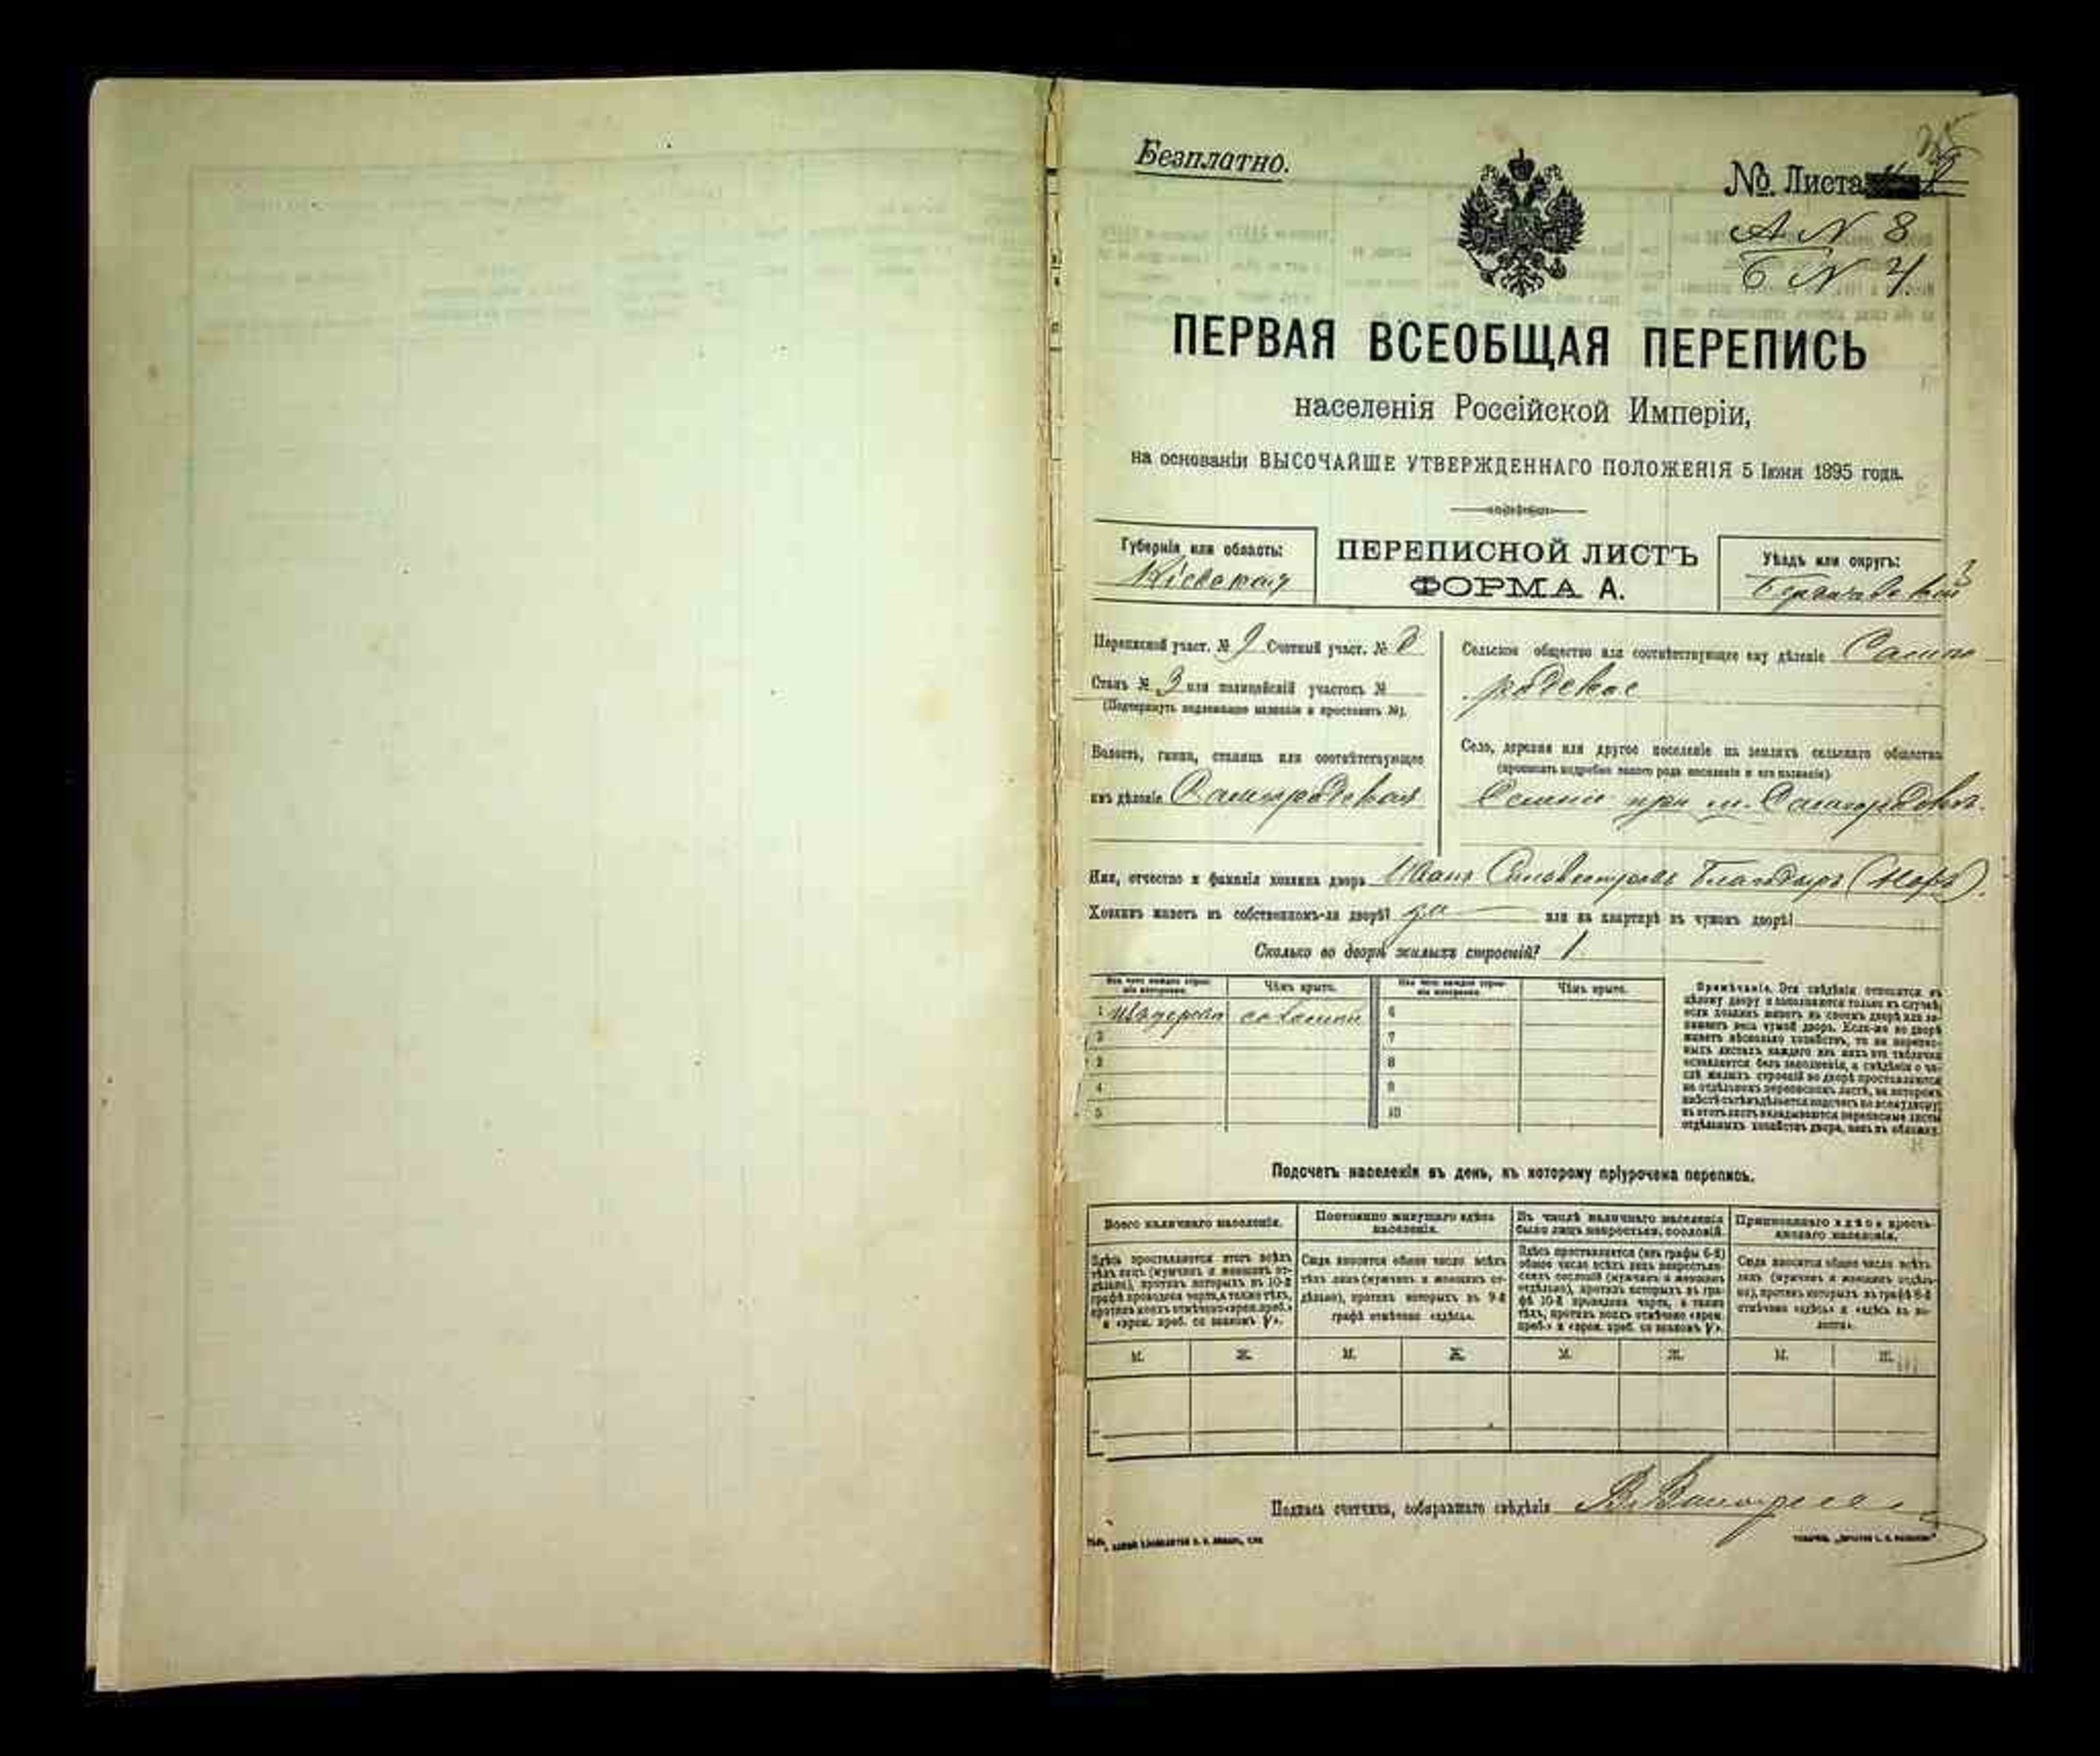 Безплатно.
№ Листа
А N 8
Б N 4
ПЕРВАЯ ВСЕОБЩАЯ ПЕРЕПИСЬ
населенія Россійской Имперіи,
на основаніи ВЫСОЧАЙШЕ УТВЕРЖДЕННАГО ПОЛОЖЕНІЯ 5 Іюня 1895 года.
Губернія или область:
Кіевская
ПЕРЕПИСНОЙ ЛИСТЪ
ФОРМА А.
Уѣздъ или округъ:
Бердичевскій
Переписной участ. № 9 Счетный участ. №
Станъ № 3 или полицейскій участокъ №
(Подчеркнуть подлежащее названіе и проставить №).
Волость, гмина, станица или соотвѣтствующее
имъ дѣленіе Самгородская
Сельское общество или соотвѣтствующее ему дѣленіе Самго
родское
Село, деревня или другое поселеніе на земляхъ сельскаго общества
(прописать подробно какого рода поселеніе и его названіе)
при м. Самгородокъ.
Имя, отчество и фамилія хозяина двора Иванъ Сильвестровъ
Хозяинъ живетъ въ собственномъ-ли дворѣ? да или на квартирѣ въ чужомъ дворѣ?
Сколько во дворѣ жилыхъ строеній? 1.
Изъ чего каждое строеніе построено.
Чѣмъ крыто.
Изъ чего каждое строеніе построено.
Чѣмъ крыто.
1 Изъ дерева соломой 6
2 7
3 8
4 9
5 10
Примѣчаніе. Эти свѣдѣнія относятся къ
цѣлому двору и заполняются только въ случаѣ,
если хозяинъ живетъ въ своемъ дворѣ или за-
нимаетъ весь чужой дворъ. Если-же во дворѣ
живетъ нѣсколько хозяйствъ, то на перепис-
ныхъ листахъ каждаго изъ нихъ эта табличка
оставляется безъ заполненія, а свѣдѣнія о чи-
слѣ жилыхъ строеній во дворѣ проставляются
на отдѣльномъ переписномъ листѣ, на которомъ
вмѣстѣ съ тѣмъ дѣлается подсчетъ по всему двору;
въ этотъ листъ вкладываются переписные листы
отдѣльныхъ хозяйствъ двора, какъ въ обложку.
Подсчетъ населенія въ день, къ которому пріурочена перепись.
Всего наличнаго населенія.
Здѣсь проставляется итогъ всѣхъ
тѣхъ лицъ (мужчинъ и женщинъ от-
дѣльно), противъ которыхъ въ 10-й
графѣ проведена черта, а также тѣхъ,
противъ коихъ отмѣчено «врем. преб.»
и «врем. преб. со знакомъ V».
Постоянно живущаго здѣсь
населенія.
Сюда вносится общее число всѣхъ
тѣхъ лицъ (мужчинъ и женщинъ от-
дѣльно), противъ которыхъ въ 9-й
графѣ отмѣчено «здѣсь».
Въ числѣ наличнаго населенія
было лицъ некрестьян. сословій.
Здѣсь проставляется (изъ графы 6-й)
общее число всѣхъ лицъ некрестьян-
скихъ сословій (мужчинъ и женщинъ
отдѣльно), противъ которыхъ въ гра-
фѣ 10-й проведена черта, а также
тѣхъ, противъ коихъ отмѣчено «врем.
преб.» и «врем. преб. со знакомъ V».
Приписаннаго здѣсь кресть-
янскаго населенія.
Сюда вносится общее число всѣхъ
лицъ (мужчинъ и женщинъ отдѣль-
но), противъ которыхъ въ графѣ 8-й
отмѣчено «здѣсь» и «здѣсь въ во-
лости».
М. Ж. М. Ж. М. Ж. М. Ж.
Подпись счетчика, собиравшаго свѣдѣнія